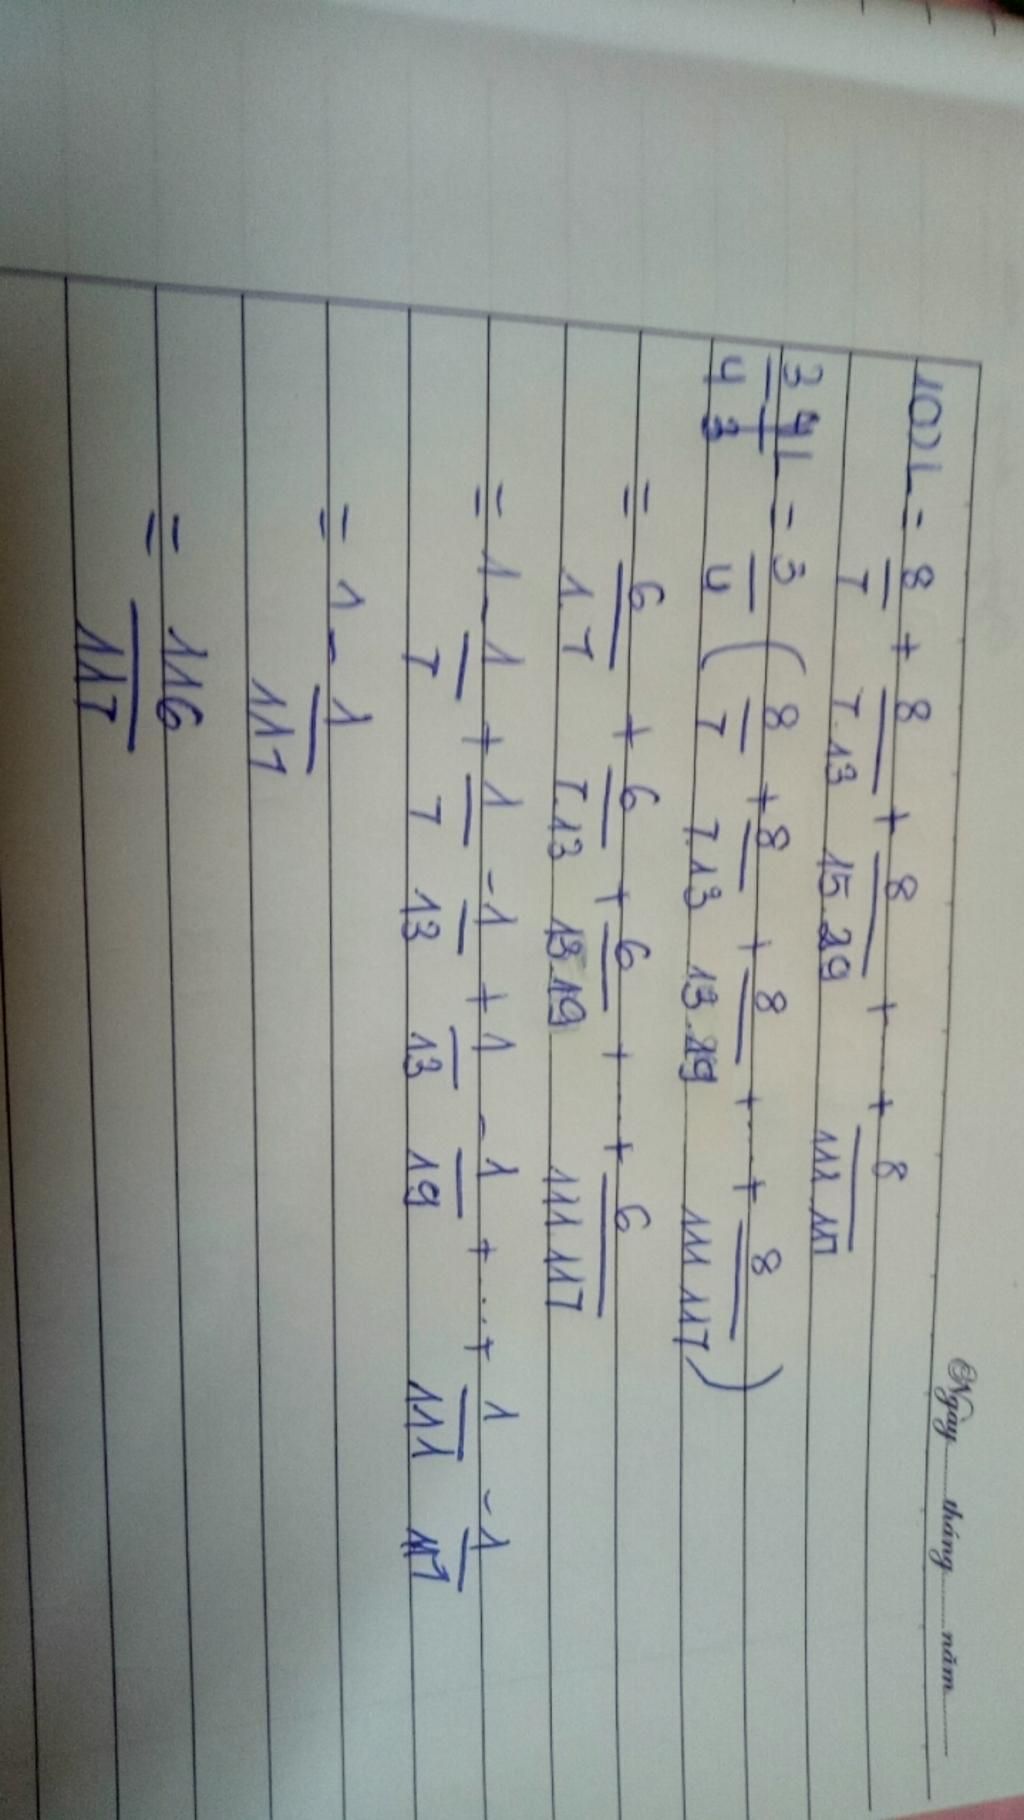 @Ngày......tháng......năm......
10) L = 8/7 + 8/7.13 + 8/15.29 + .... + 8/111.117
3/4 L = 3/4 ( 8/7 + 8/7.13 + 8/13.29 + .... + 8/111.117 )
= 6/1.7 + 6/7.13 + 6/13.19 + .... + 6/111.117
= 1 - 1/7 + 1/7 - 1/13 + 1/13 - 1/19 + .... + 1/111 - 1/117
= 1 - 1/117
= 116/117